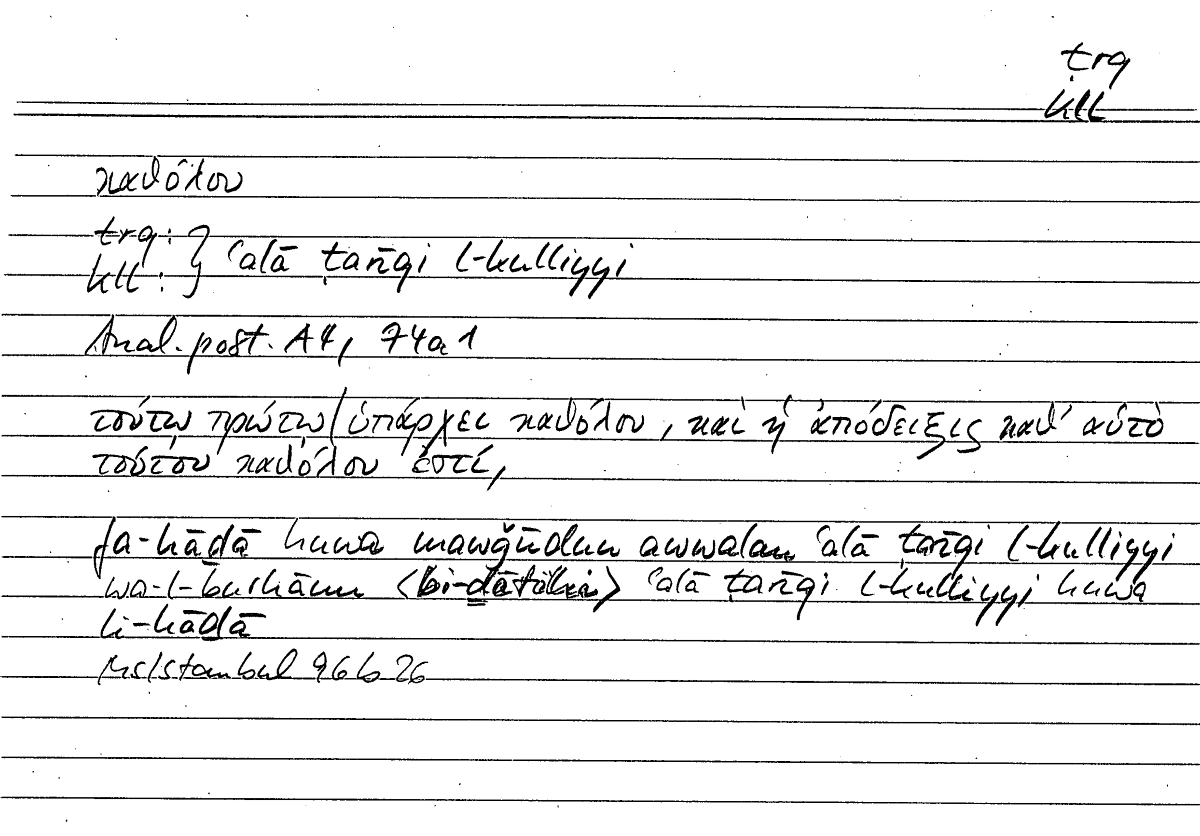 ṭrq
kll
καθόλου
ṭrq: } ʿalā ṭarīqi l-kulliyyi
kll:
Anal. post. A4, 74a1
τούτῳ πρώτῳ/ὑπάρχει καθόλου, καὶ ἡ ἀπόδειξις καθ᾽ αὑτὸ
τούτου καθόλου ἐστί,
fa-hāḏā huwa mawǧūdun awwalan ʿalā ṭarīqi l-kulliyyi
wa-l-burhānu <bi-ḏātihi> ʿalā ṭarīqi l-kulliyyi huwa
li-hāḏā
Ms Istanbul 96b26